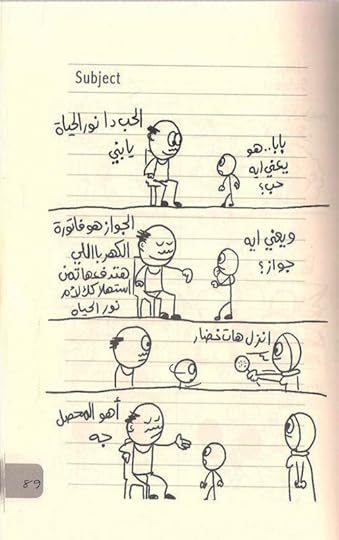 Subject
بابا.. هو
يعني ايه
حب؟
الحب دا نور الحياة
يابني
ويعني ايه
جواز؟
الجواز هو فاتورة
الكهربا اللي
هتدفعها تمن
استهلاكك لأم
نور الحياه
انزل هات خضار
أهو المحصل
جه
89